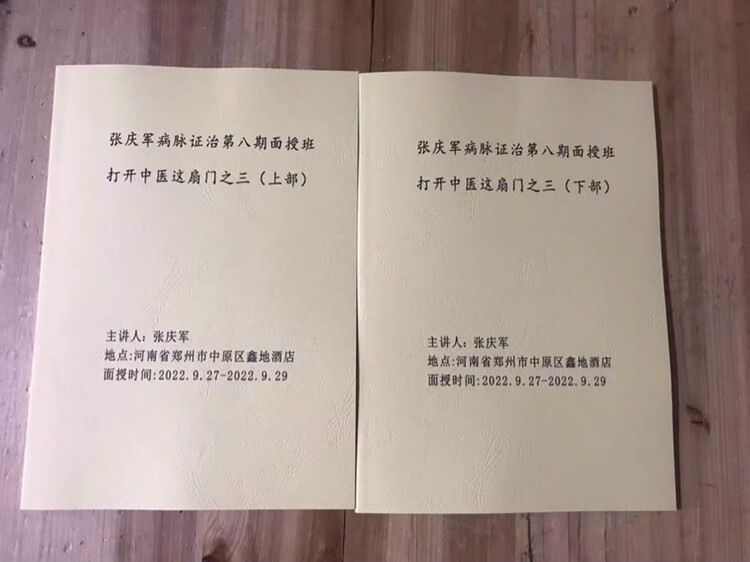 张庆军病脉证治第八期面授班
打开中医这扇门之三（上部）
主讲人：张庆军
地点:河南省郑州市中原区鑫地酒店
面授时间:2022.9.27-2022.9.29
张庆军病脉证治第八期面授班
打开中医这扇门之三（下部）
主讲人：张庆军
地点:河南省郑州市中原区鑫地酒店
面授时间:2022.9.27-2022.9.29